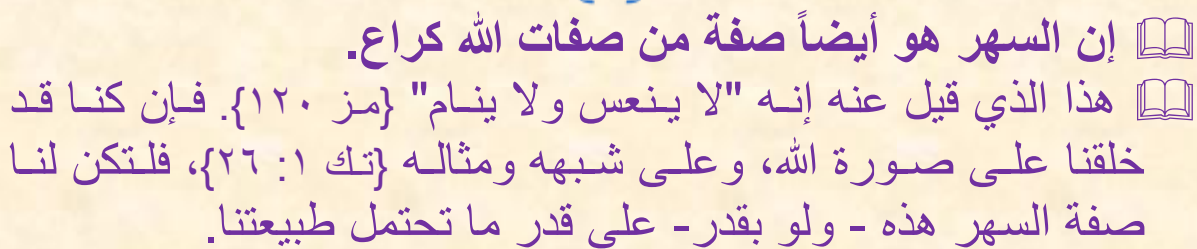 📖 إن السهر هو أيضاً صفة من صفات الله كراع.
📖 هذا الذي قيل عنه إنـه "لا يـنعس ولا ينـام" {مـز ١٢٠}. فـإن كنـا قـد
خلقنا علـى صـورة الله، وعلـى شـبهه ومثالـه {تـك ١: ٢٦}، فلـتكن لنـا
صفة السهر هذه - ولو بقدر- على قدر ما تحتمل طبيعتنا.